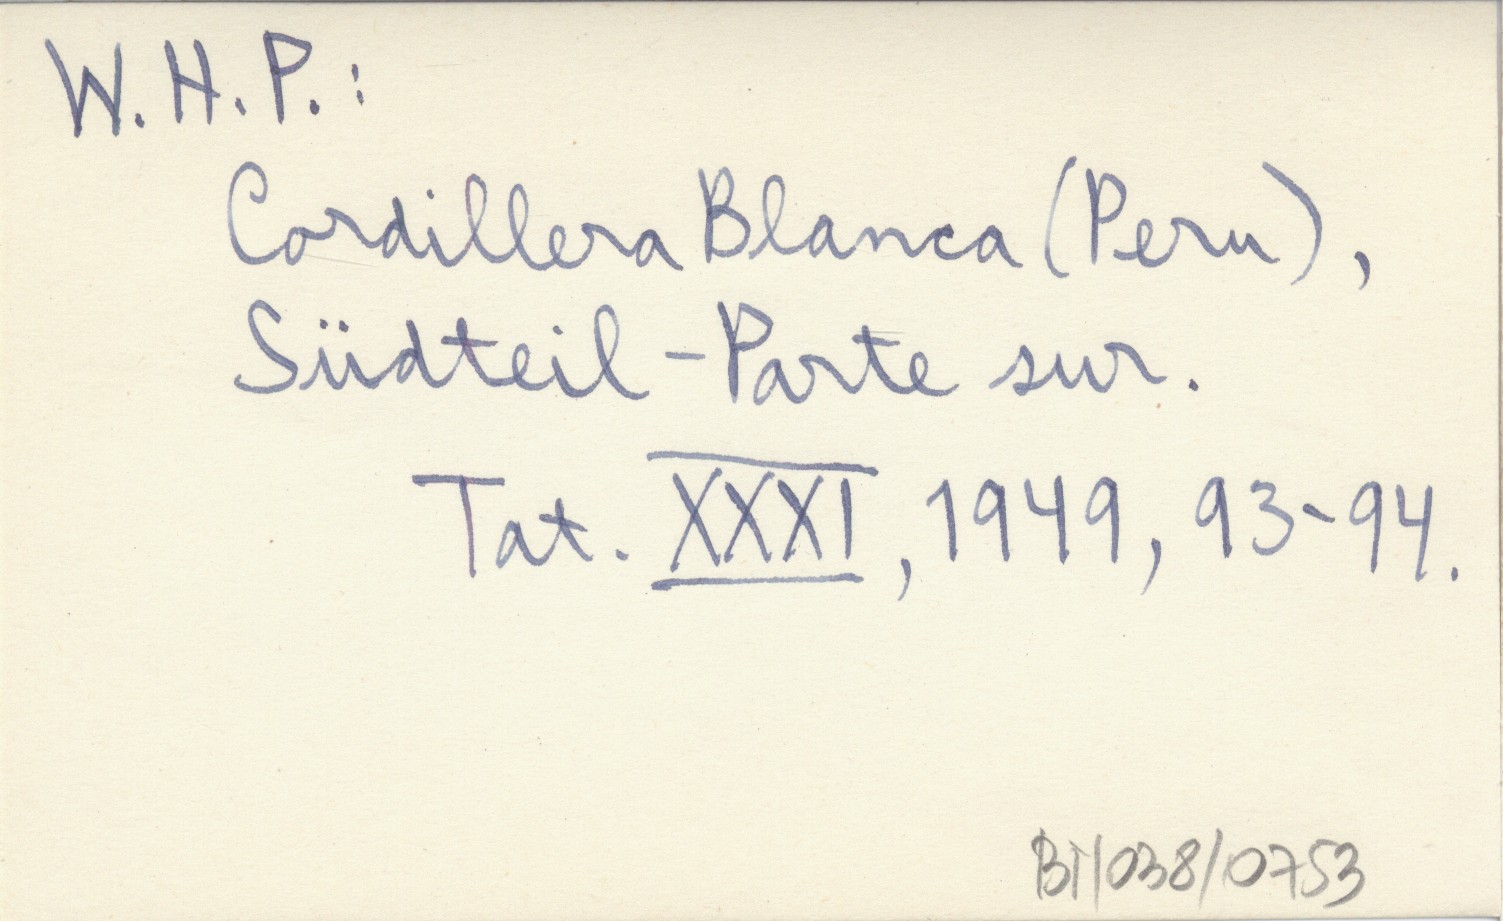 W.H.P.:
Cordillera Blanca (Peru),
Südteil - Parte sur.
Tat. XXXI, 1949, 93-94.
BT/038/0753